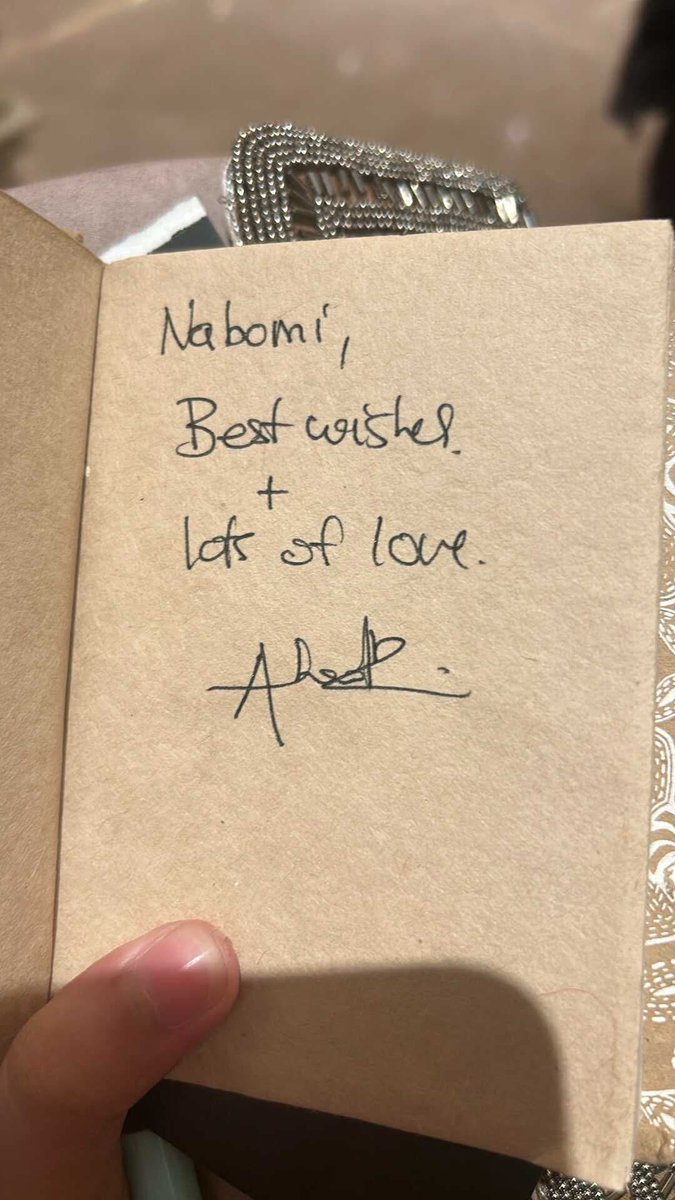 Nabomi,
Best wishes.
+
lots of love.